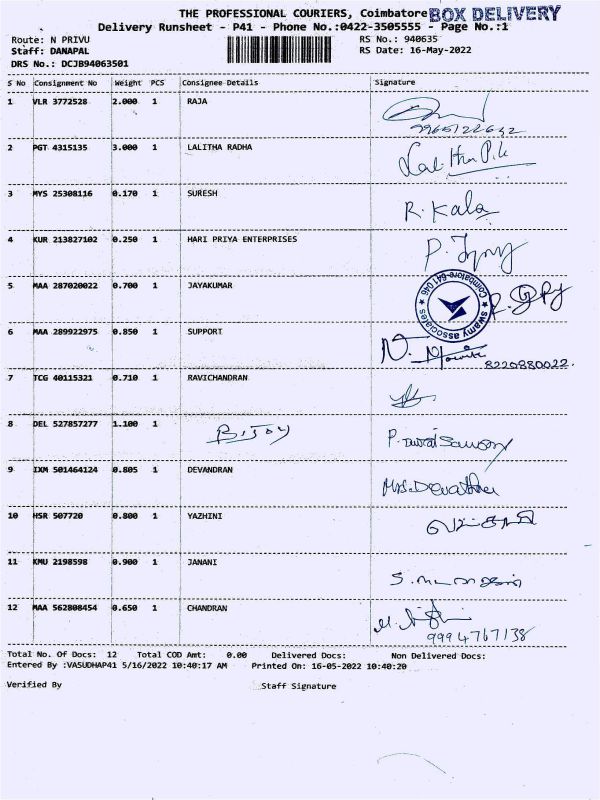 THE PROFESSIONAL COURIERS, Coimbatore BOX DELIVERY
Delivery Runsheet - P41 - Phone No.:0422-3505555 - Page No.:1
Route: N PRIVU RS No.: 940635
Staff: DANAPAL RS Date: 16-May-2022
DRS No.: DCJB94063501
S No Consignment No Weight PCS Consignee Details Signature
1 VLR 3772528 2.000 1 RAJA
2 PGT 4315135 3.000 1 LALITHA RADHA
3 MYS 25308116 0.170 1 SURESH R. Kala
4 KUR 213827102 0.250 1 HARI PRIYA ENTERPRISES
5 MAA 287020022 0.700 1 JAYAKUMAR
swamy associates Coimbatore-641 046
6 MAA 289922975 0.850 1 SUPPORT
8220880022.
7 TCG 40115321 0.710 1 RAVICHANDRAN
8 DEL 527857277 1.100 1 BIJOY
9 IXM 501464124 0.805 1 DEVANDRAN
10 HSR 507720 0.800 1 YAZHINI
11 KMU 2198598 0.900 1 JANANI
12 MAA 562808454 0.650 1 CHANDRAN
9994767138
Total No. Of Docs: 12 Total COD Amt: 0.00 Delivered Docs: Non Delivered Docs:
Entered By :VASUDHAP41 5/16/2022 10:40:17 AM Printed On: 16-05-2022 10:40:20
Verified By Staff Signature